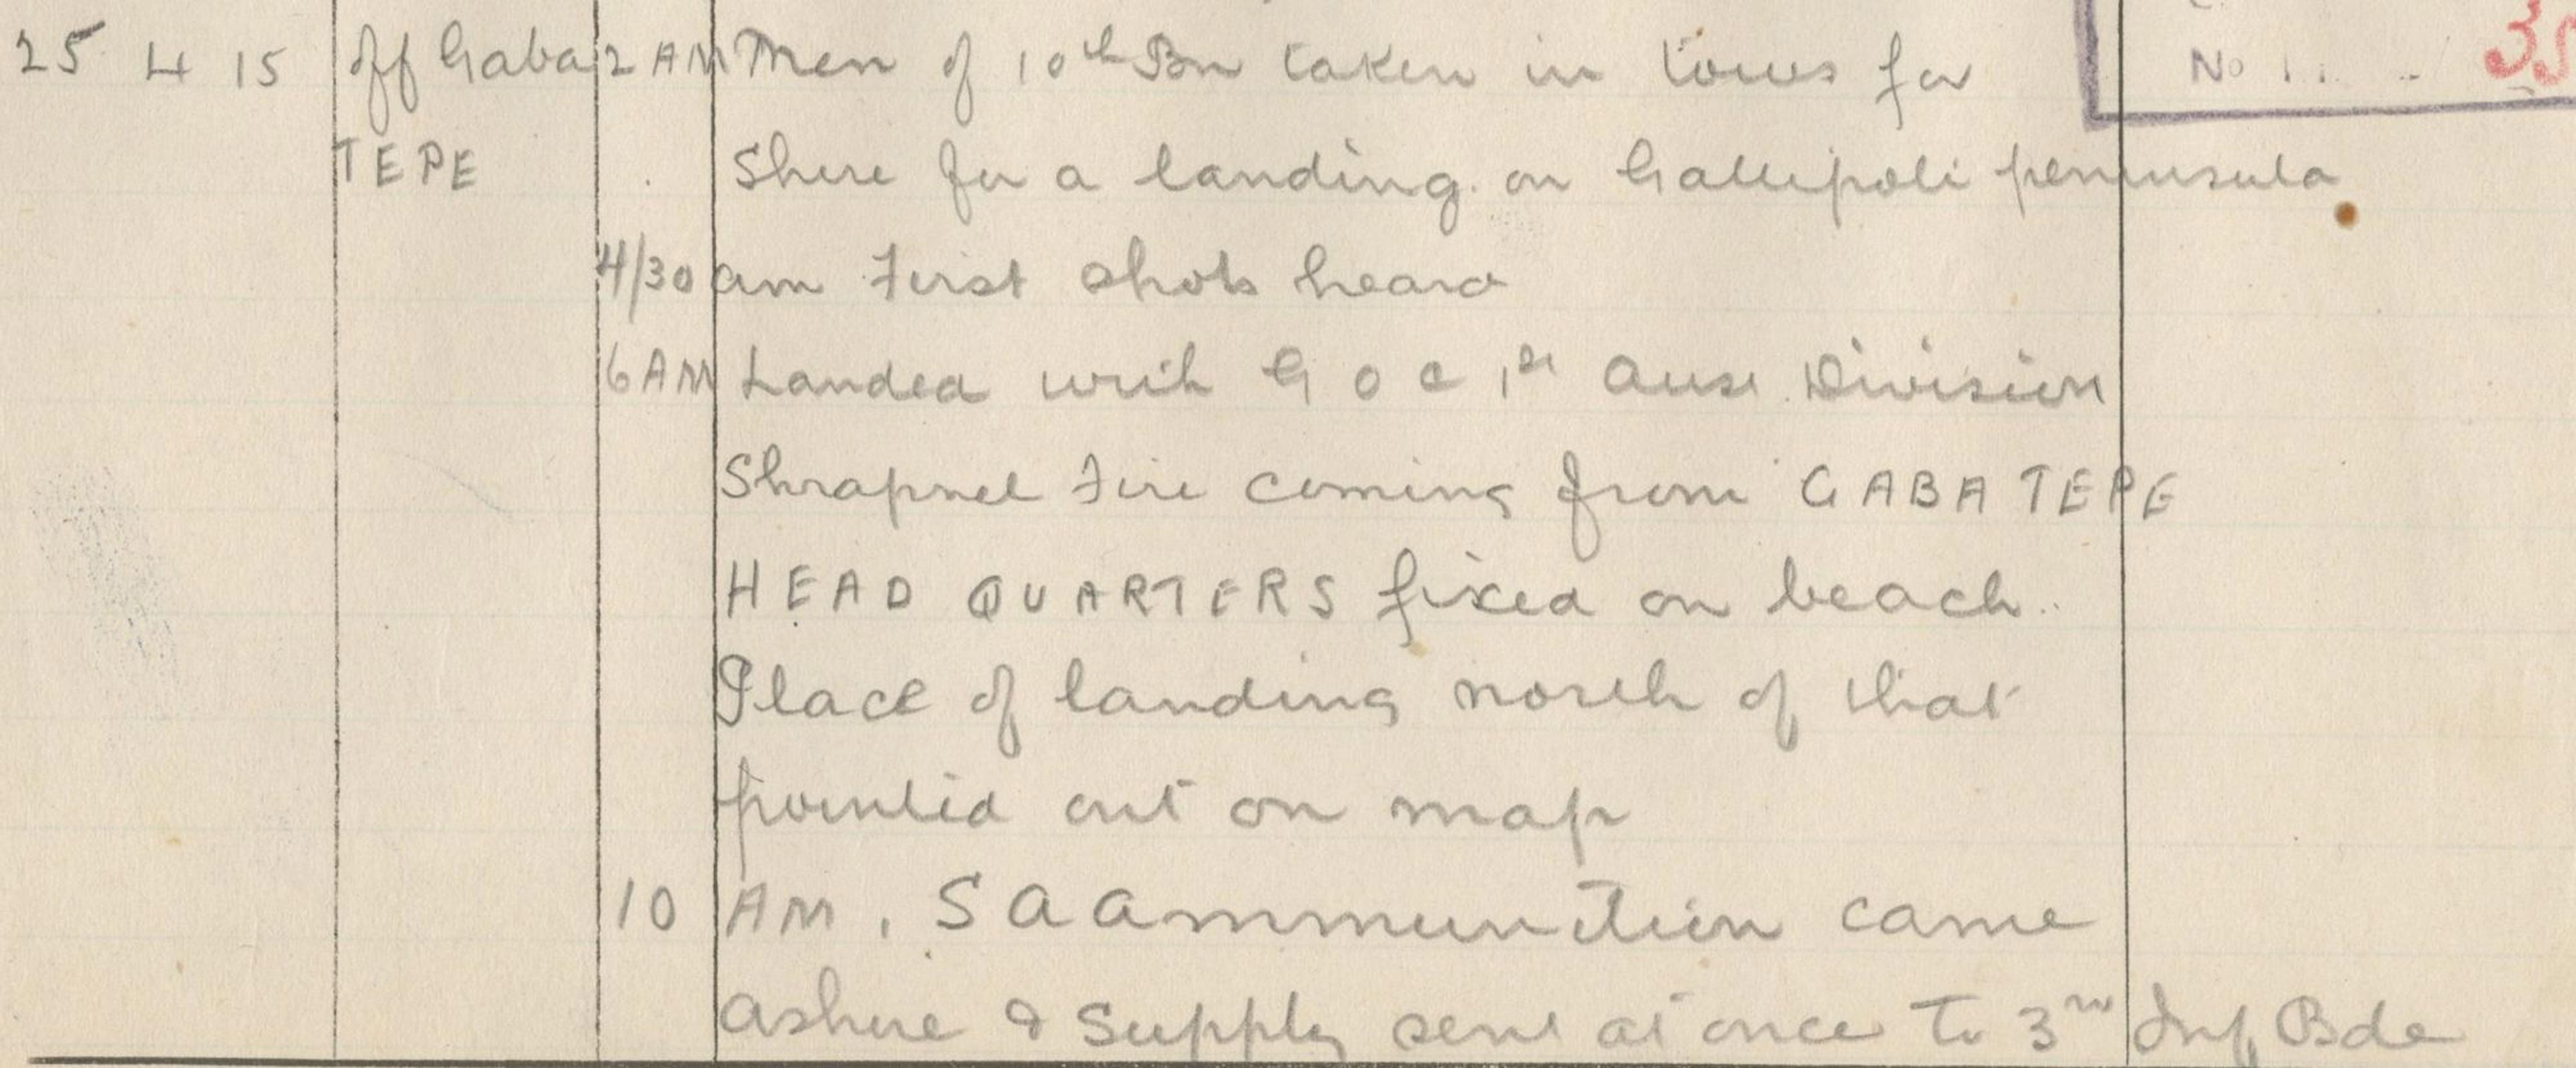 25 4 15 off Gaba 2 AM Men of 10th Bn taken in tows for
No 35
TEPE shore for a landing on Gallipoli peninsula
4/30 am First shots heard
6 AM Landed with G O C 1st Aust Division
Shrapnel Fire coming from GABA TEPE
HEAD QUARTERS fixed on beach.
Place of landing north of that
pointed out on map
10 AM. S A Ammunition came
ashore & supply sent at once to 3rd Inf Bde